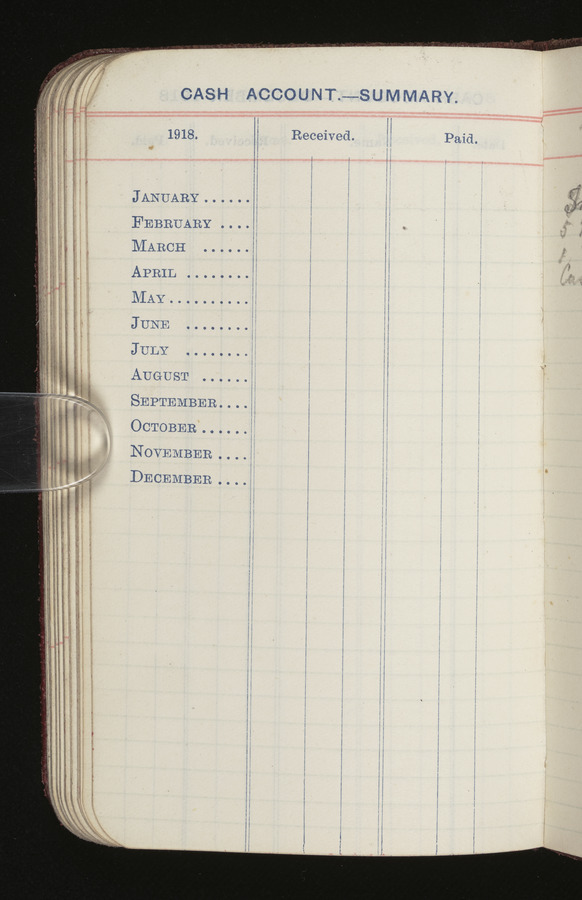 CASH ACCOUNT.—SUMMARY.
1918. Received. Paid.
JANUARY ......
FEBRUARY ....
MARCH ......
APRIL ........
MAY ..........
JUNE ........
JULY ........
AUGUST ......
SEPTEMBER....
OCTOBER ......
NOVEMBER ....
DECEMBER ....